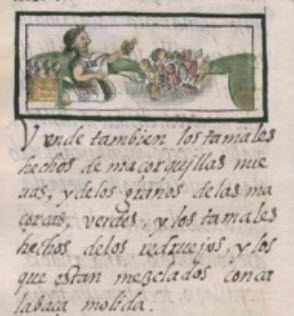 Vende tambien los tamales
hechos de maçorquillas nue
uas, y delos granos delas ma
çorcas, verdes, y los tamales
hechos delos redruejos, y los
que estan mezclados con ca
labaça molida.